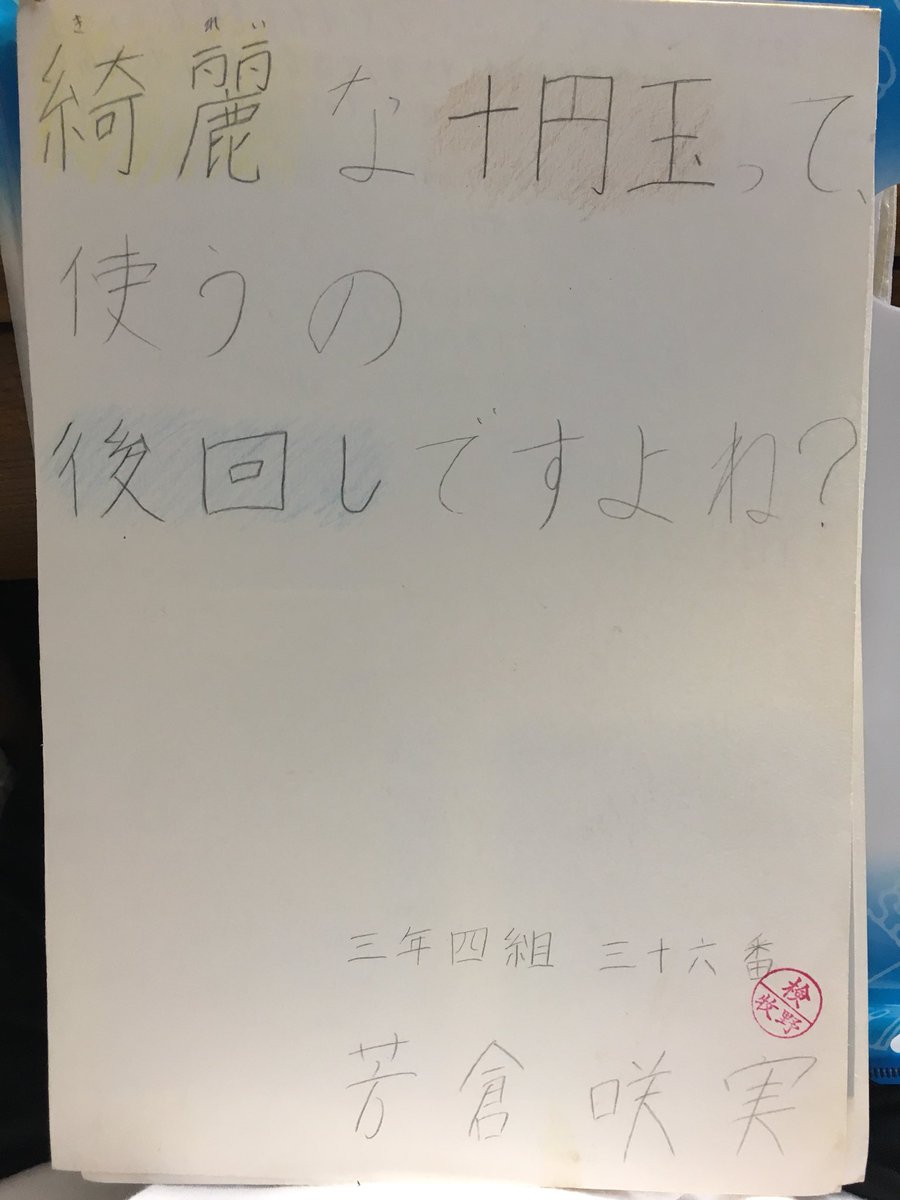 きれい
綺麗な十円玉って、
使うの
後回しですよね?
三年四組 三十六番
検
牧野
芳倉咲実